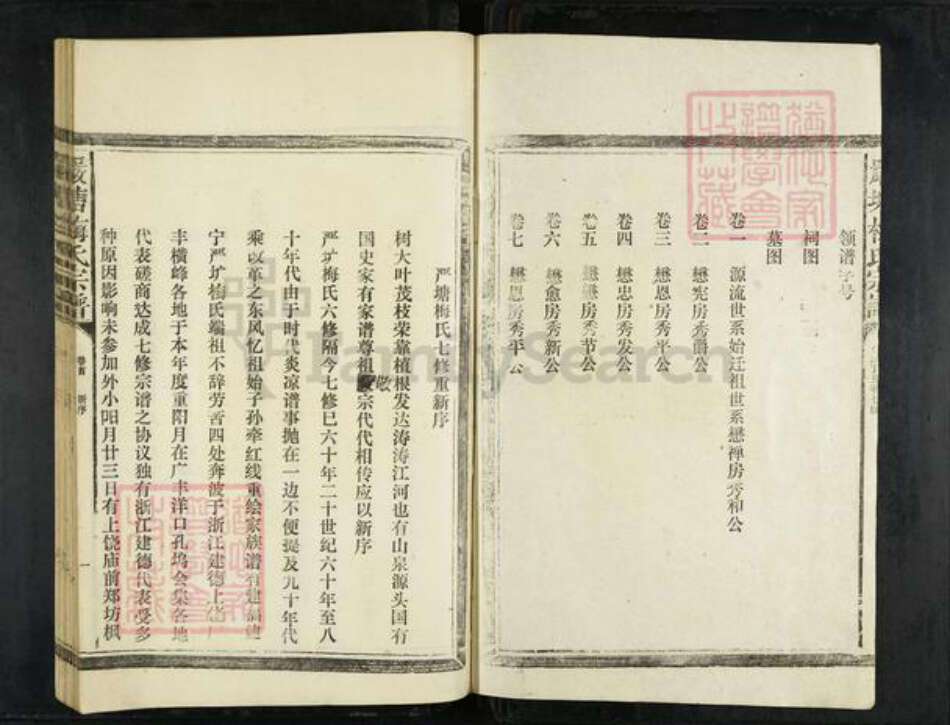 领谱字号
祠图
墓图
卷一 源流世系始迁祖世系懋禅房秀和公
卷二 懋宪房秀爵公
卷三 懋恩房秀平公
卷四 懋忠房秀发公
卷五 懋房秀节公
卷六 懋愈房秀新公
卷七 懋恩房秀平公
严塘梅氏七修重新序
树大叶茂枝荣靠植根发达涛涛江河也有山泉源头国有
国史家有家谱尊祖敬宗代代相传应以新序
严圹梅氏六修隔今七修已六十年二十世纪六十年至八
十年代由于时代炎凉谱事抛在一边不便提及九十年代
乘改革之东风忆祖始子孙牵红线重绘家族谱有建
宁严圹梅氏端祖不辞劳苦四处奔波于浙江建德上
丰横峰各地于本年度重阳月在广丰洋口孔坞会集各地
代表磋商达成七修宗谱之协议独有浙江建德代表受多
种原因影响未参加外小阳月廿三日有上饶庙前郑坊枫
严塘梅氏宗谱
卷首 新序
一
FamilySearch